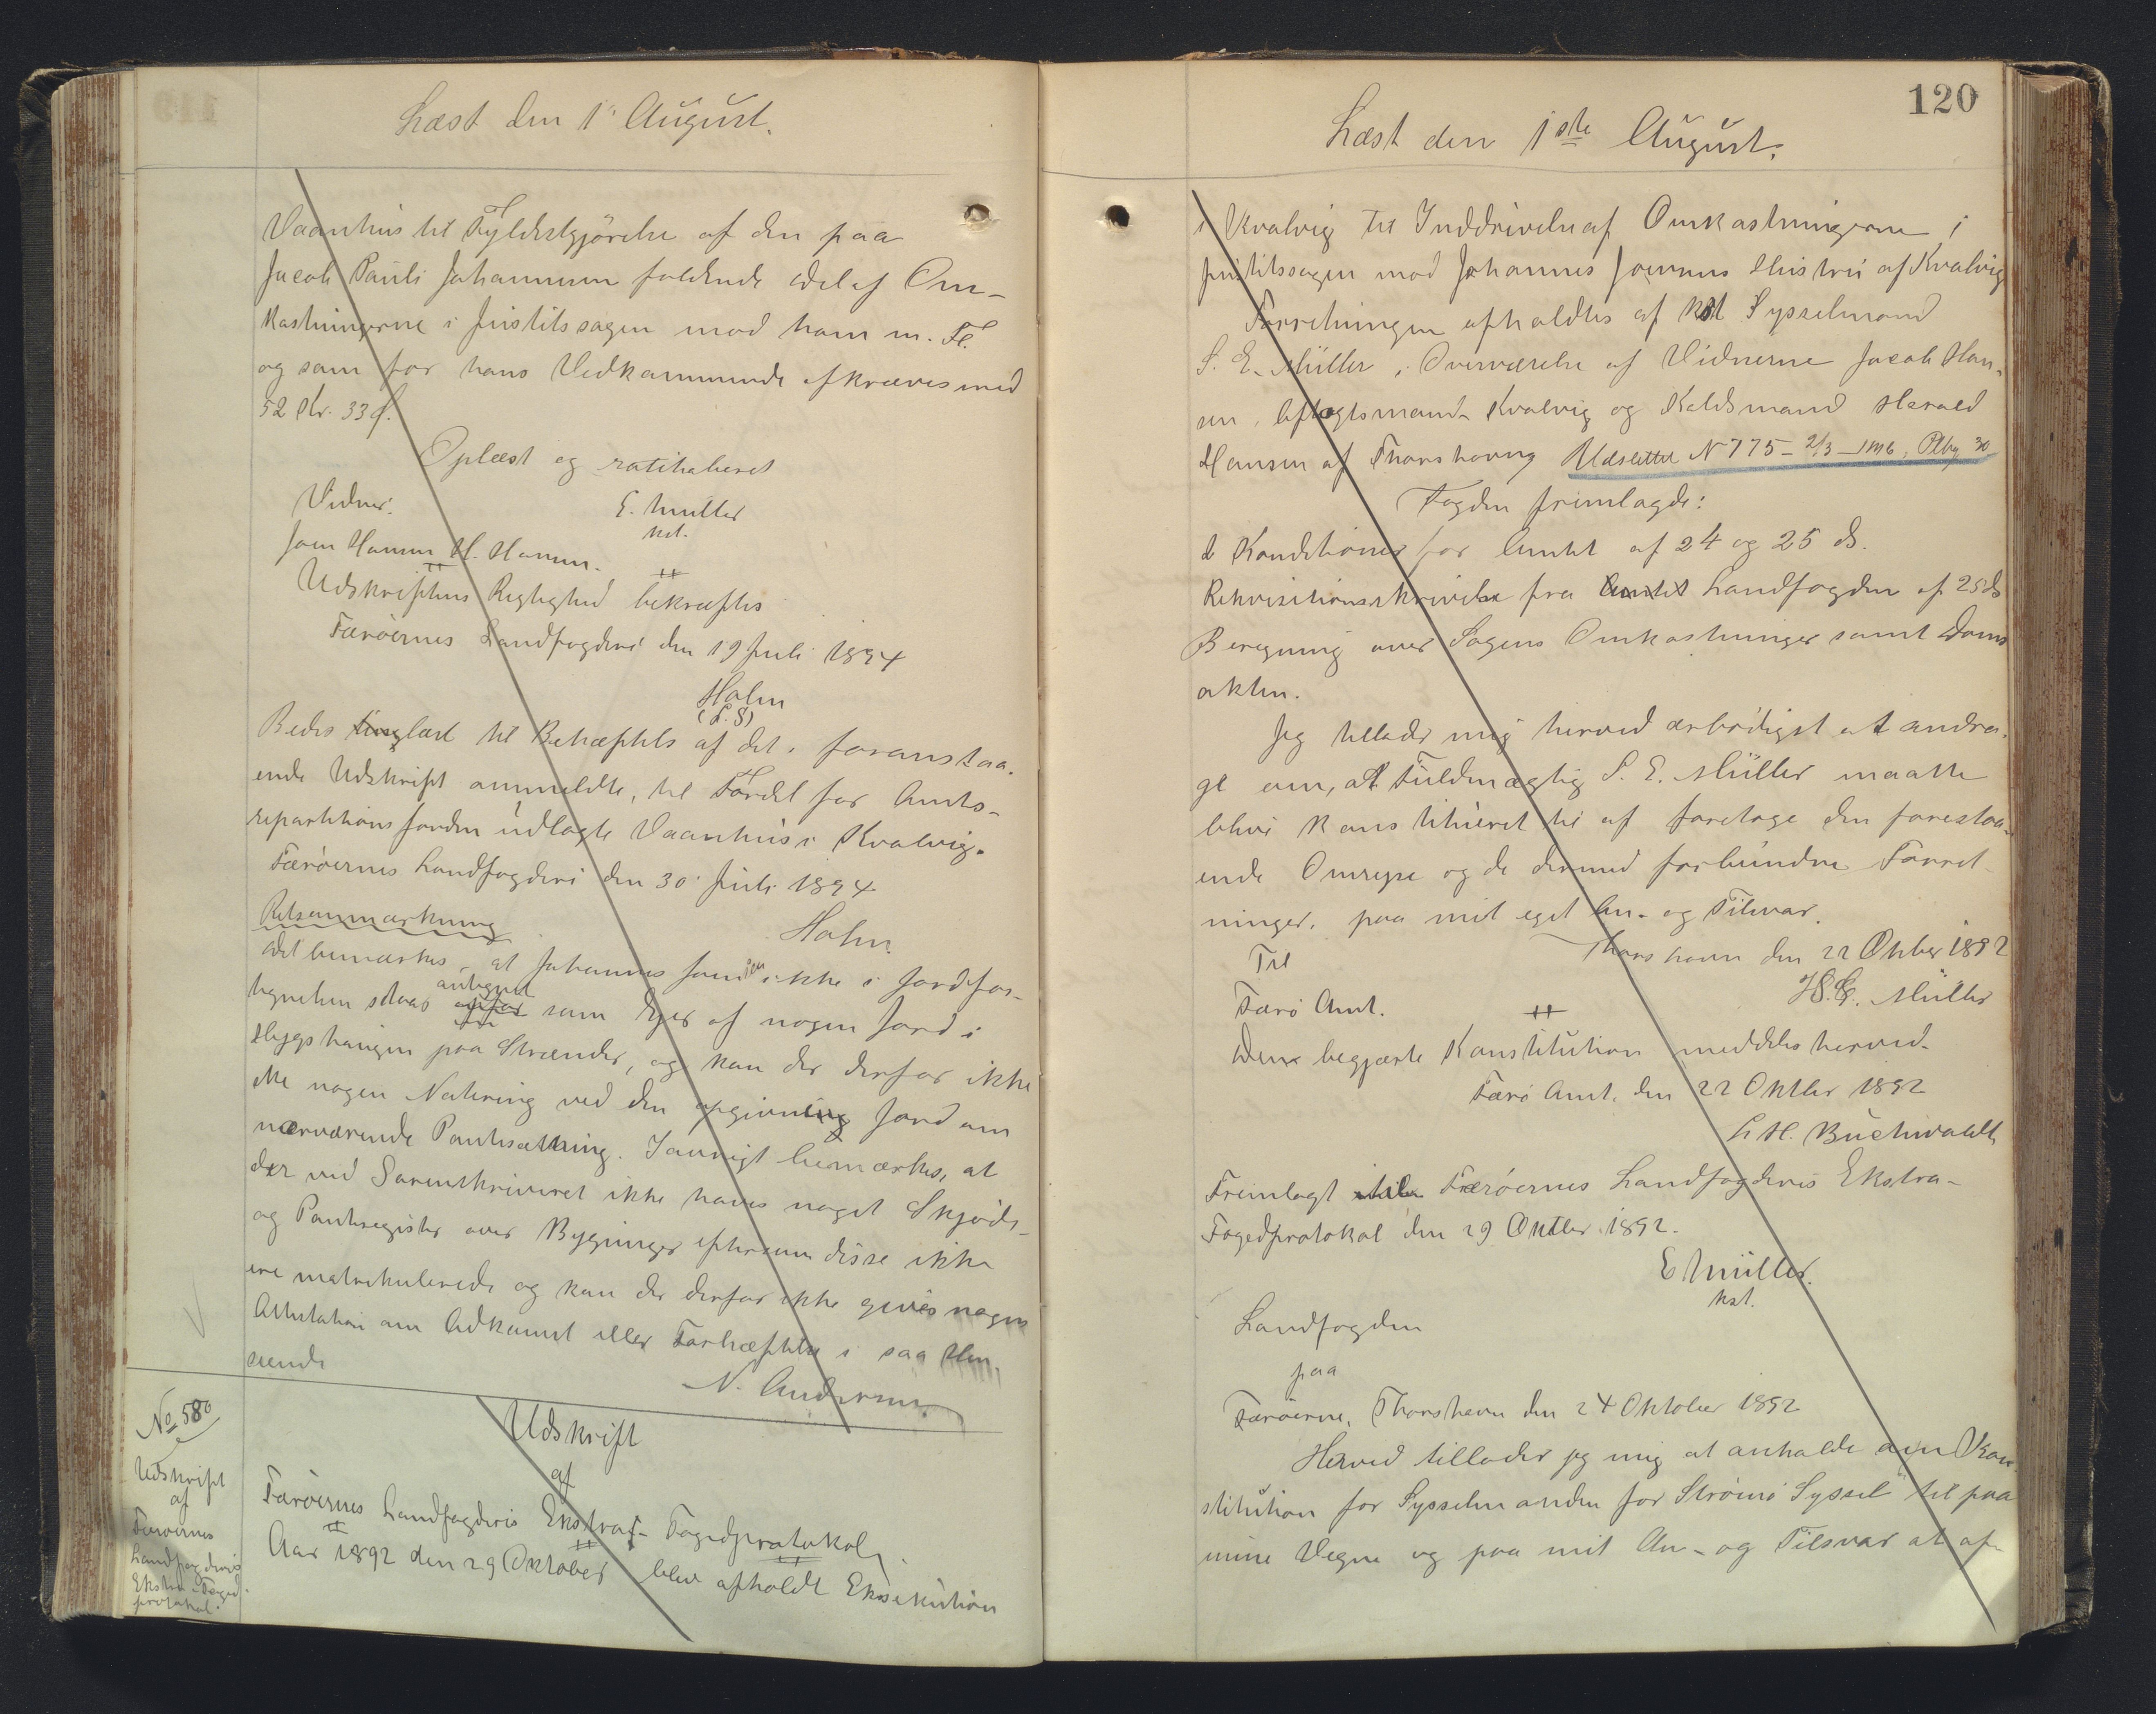 Læst den 1' August.
Vaanhus til Fyldestgjörelse af den paa
Jacob Pauli Johannesen faldende Del af Om-
kostningerne i Justitssagen mod ham m. Fl.
og som for hans Vedkommende afkræves med
52 Kr. 33 Ø.
Oplæst og ratihaberet
Vidner. E. Müller
kst.
Joen Hansen H. Hansen.
Udskriftens Rigtighed bekræftes
Færöernes Landfogderi den 19 Juli 1894
Hahn
(L.S)
Bedes tinglæst til Behæftelse af det i foranstaa-
ende Udskrift ommeldte, til Fordel for Amts-
repartitionsfonden udlagte Vaanhus i Kvalvig.
Færöernes Landfogderi den 30' Juli 1894.
Hahn.
Retsanmærkning
Det bemærkes, at Johannes Joensen ikke i Jordefor-
tegnelsen staar antegnet som Ejer af nogen Jord i
Hygshaugen paa Strænder, og kan der derfor ikke
ske nogen Notering ved den opgivne Jord om
nærværende Pantsætning. Iøvrigt bemærkes, at
der ved Sorenskriveriet ikke haves noget Skjøde-
og Panteregister over Bygninger eftersom disse ikke
ere matrikulerede og kan der derfor ikke gives nogen
Attestation om Adkomst eller Forhæftelse i saa Hen-
seende
N. Andersen.
No 580
Udskrift
af
Færöernes
Landfogderis
Ekstra-Foged-
protokol.
Udskrift
af
Færöernes Landfogderis Ekstra- Fogedprotokol.
Aar 1892 den 29 Oktober blev afholdt Eksekution
120
Læst den 1ste August.
i Kvalvig til Inddrivelse af Omkostningerne i
Justitssagen mod Johannes Joensens Hustru af Kvalvig
Forretningen afholdtes af kst Sysselmand
S. E. Müller, i Overværelse af Vidnerne Jacob Han-
sen, Aftægtsmand Kvalvig og Kaldsmand Harald
Hansen af Thorshavn. Udslettet N 775 - 2/3 -
Fogden fremlagde:
2 Konstitutioner for Amtet af 24 og 25 ds.
Rekvisitionsskrivelse fra Amtet Landfogden af 25 ds
Beregning over Sagens Omkostninger samt Doms
akten.
Jeg tillader mig herved ærbödigst at andra-
ge om, at Fuldmægtig S. E. Müller maatte
blive konstitueret til at foretage den forestaa-
ende Omrejse og de dermed forbundne Forret-
ninger, paa mit eget An- og Tilsvar.
Thorshavn den 22 Oktber 1892
Til H.C. Müller
Færö Amt.
Den begjærte Konstitution meddeles herved.
Færö Amt, den 22 Oktber 1892
L H. Buchwaldt
Fremlagt i Færöernes Landfogderis Ekstra-
Fogedprotokol den 29 Oktber 1892.
E Müller.
kst.
Landfogden
paa
Færöerne, Thorshavn den 24 Oktober 1892
Herved tillader jeg mig at anholde om Kon-
stitution for Sysselmanden for Strömö Syssel til paa
mine Vegne og paa mit An- og Tilsvar at af-